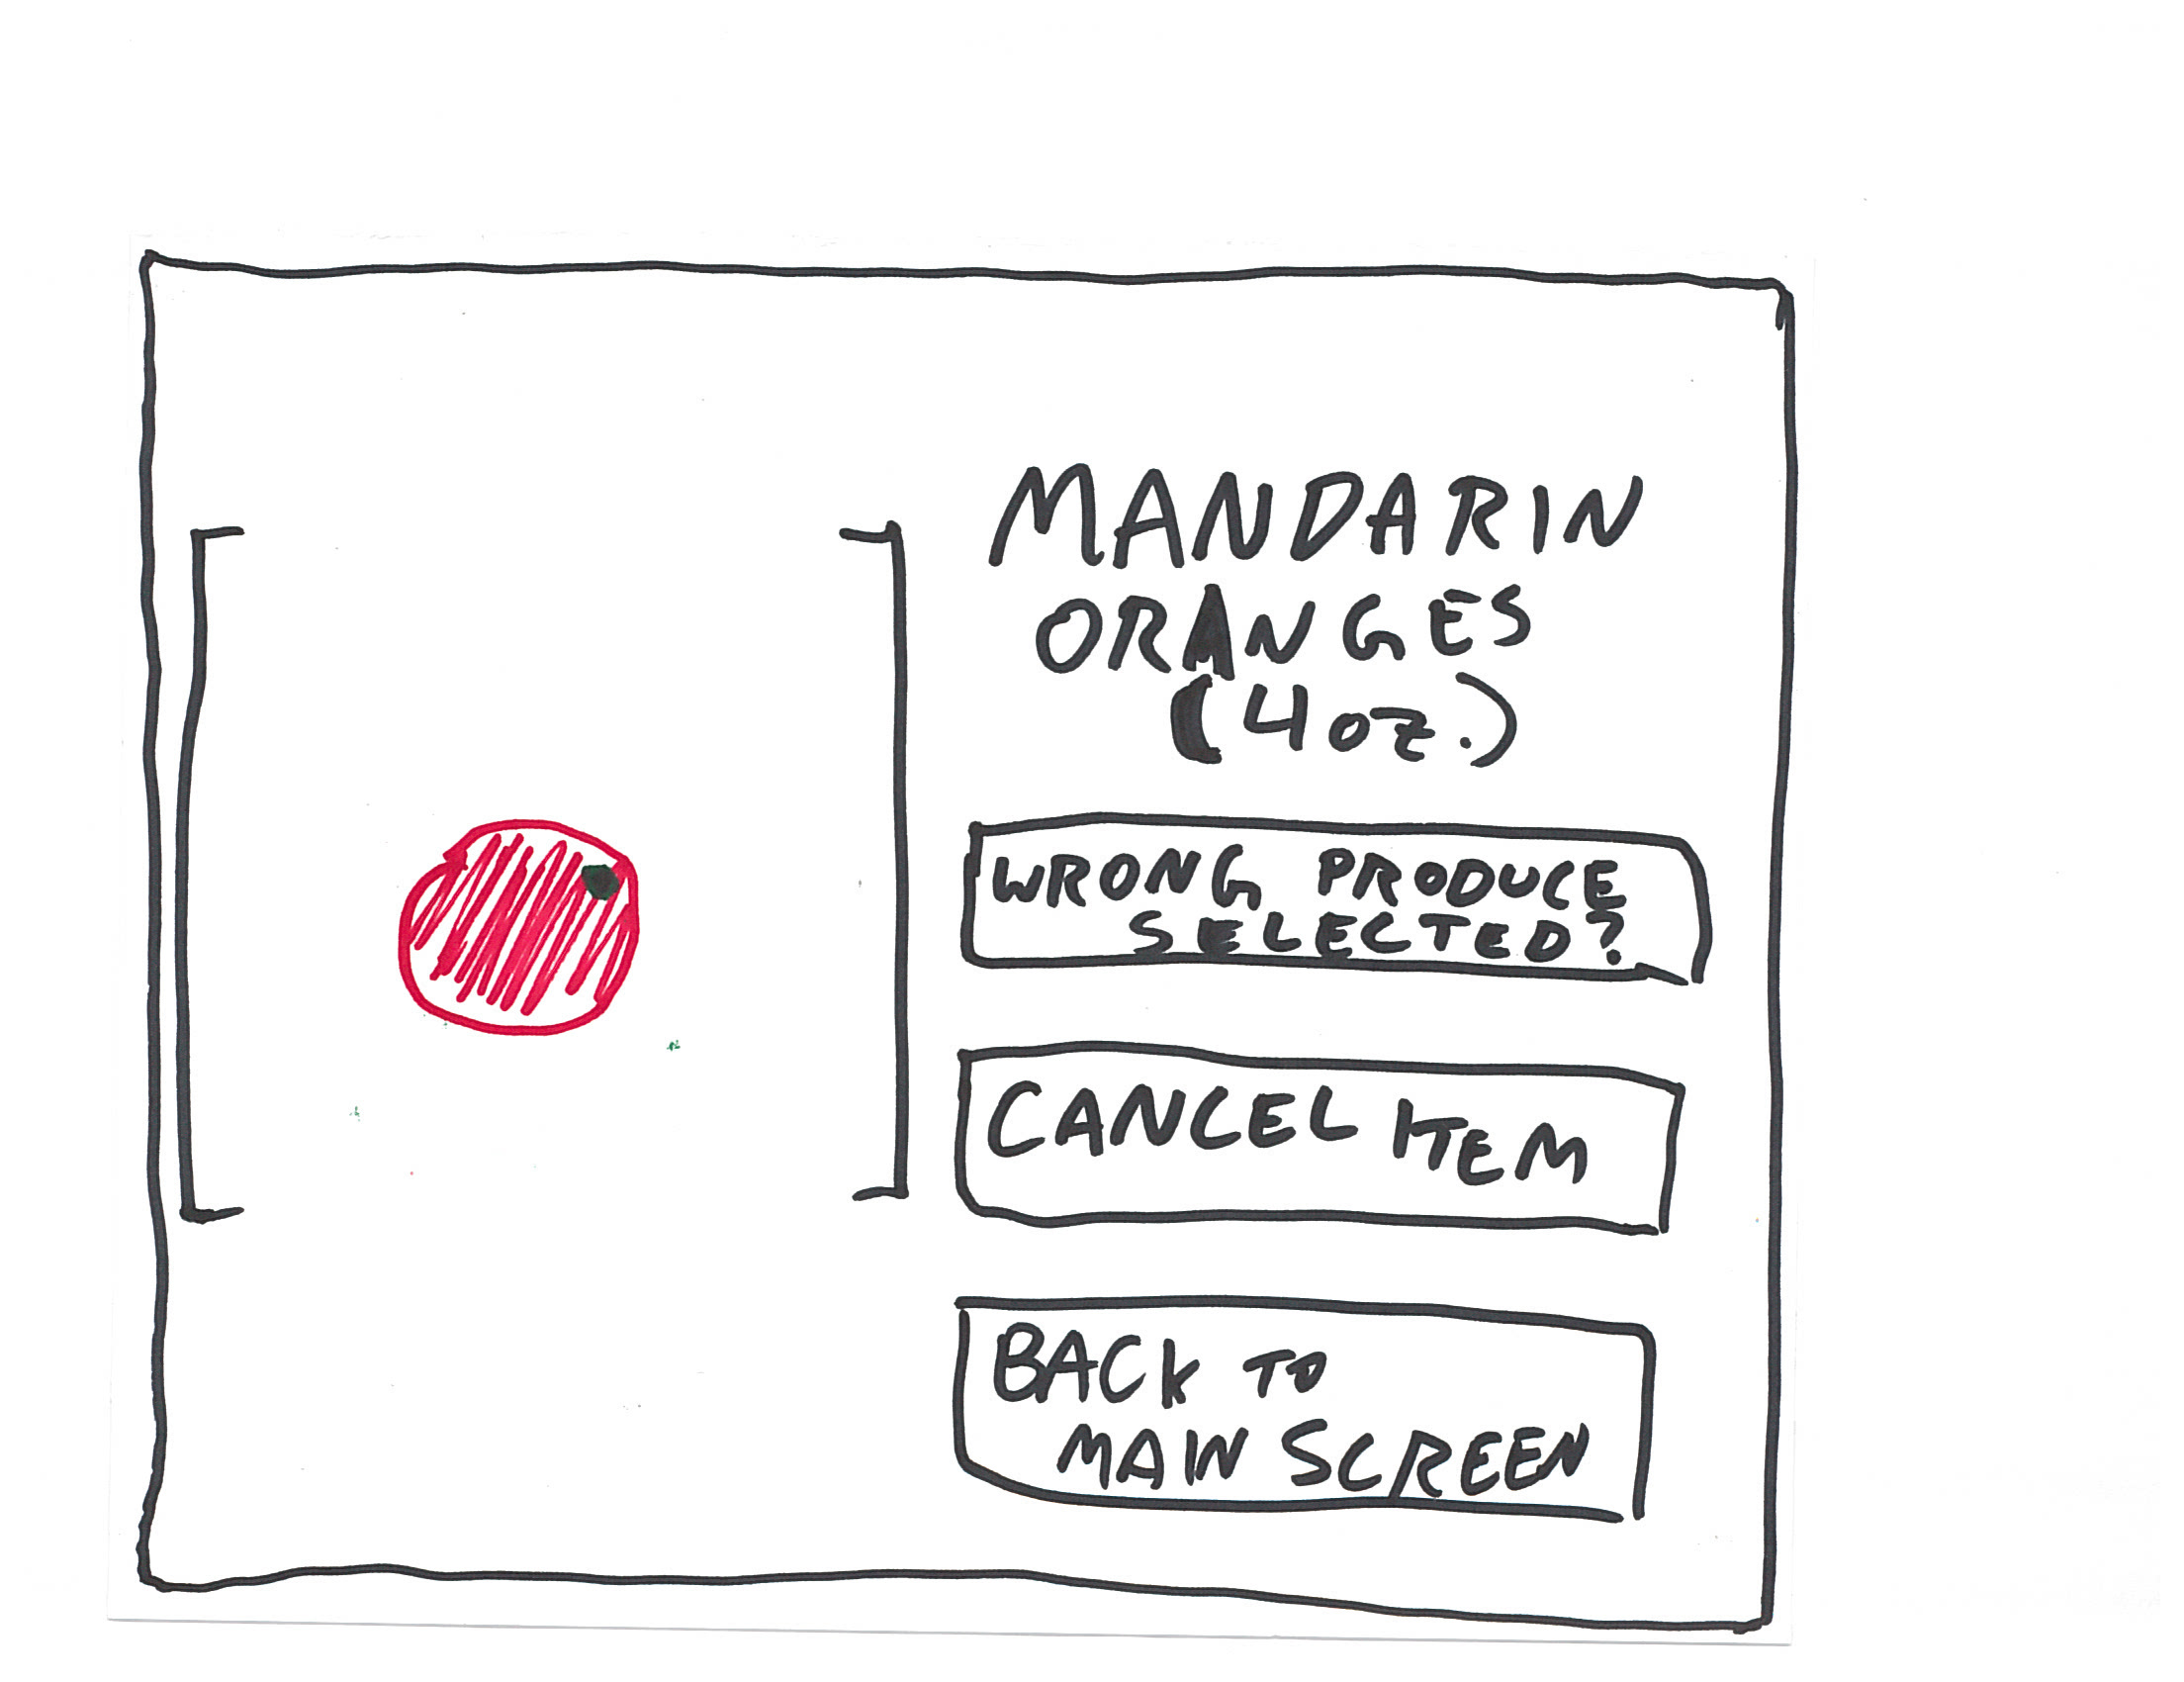 MANDARIN
ORANGES
(4oz.)
WRONG PRODUCE
SELECTED?
CANCEL ITEM
BACK TO
MAIN SCREEN